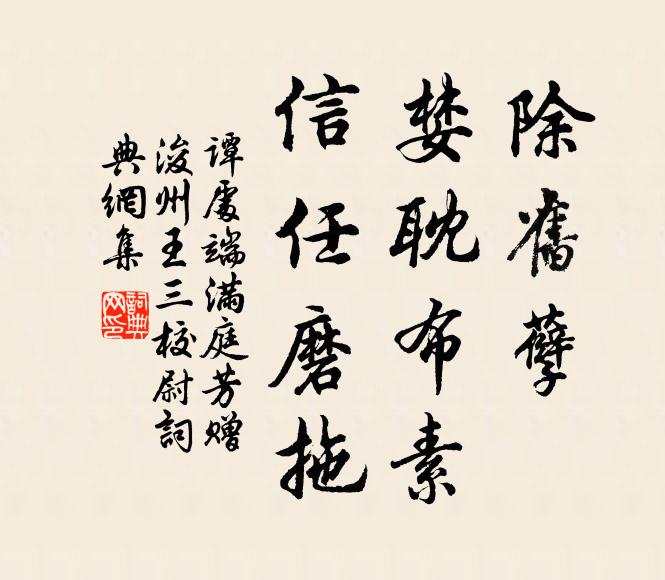 除舊孽
婪耽布素
信任磨拖
譚處端滿庭芳贈
浚州王三校尉詞
典網集
詞典网印